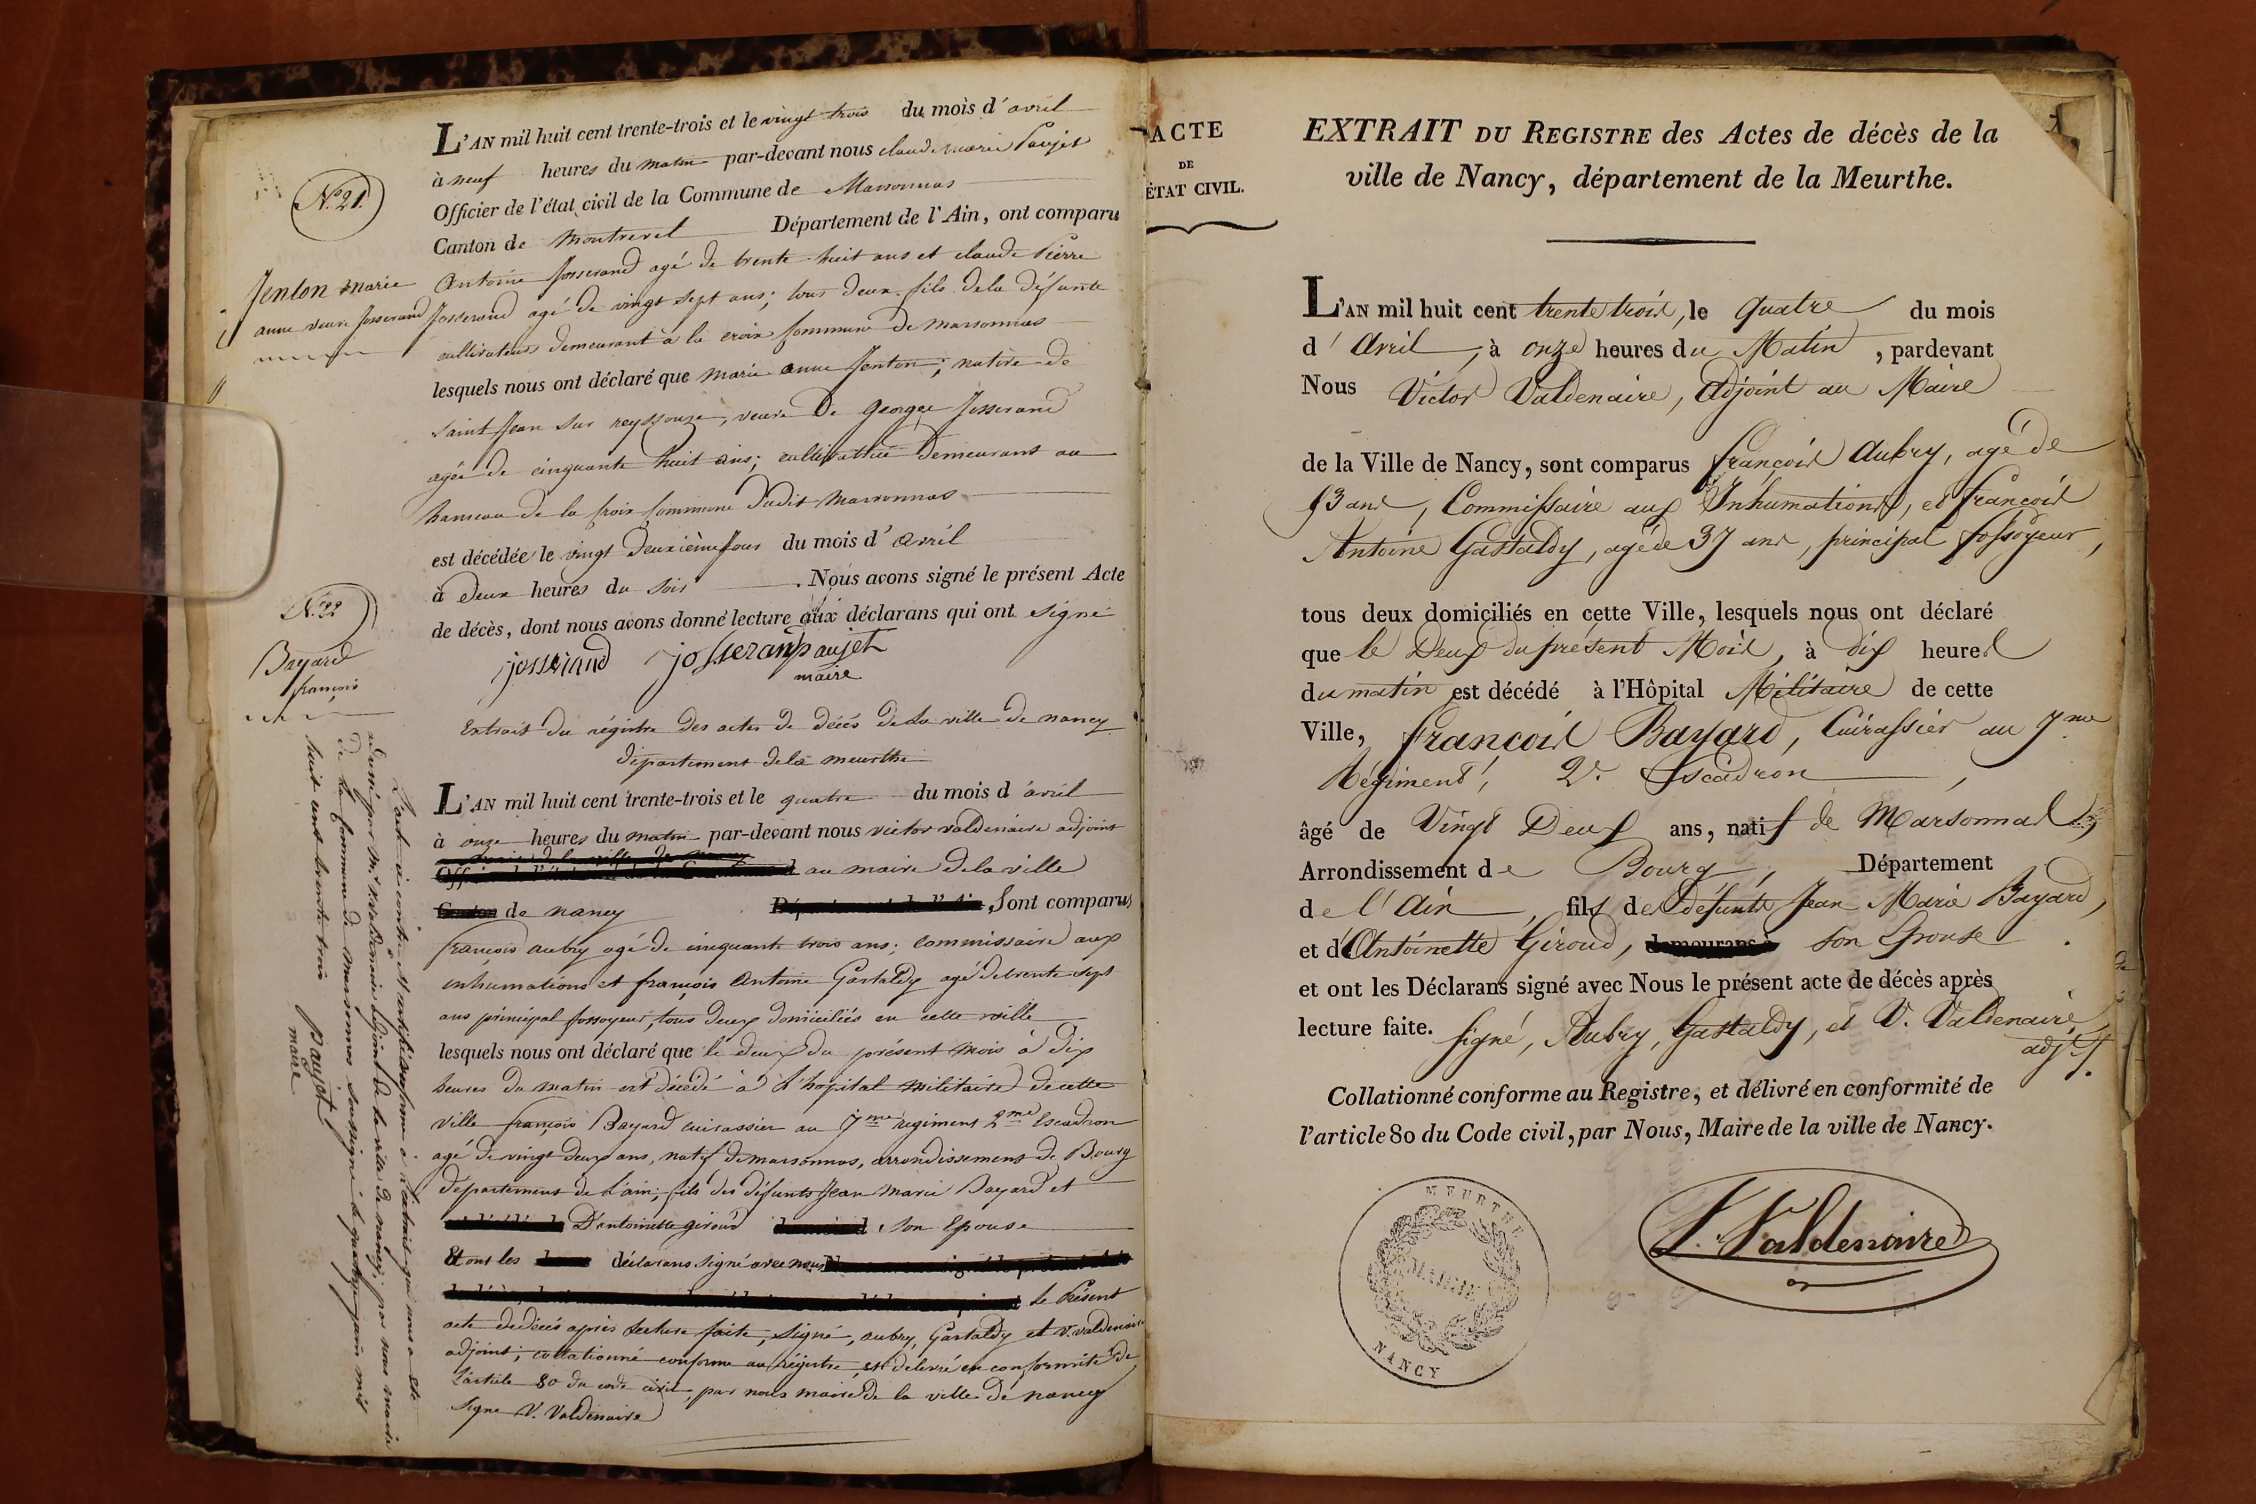 L'AN mil huit cent trente-trois et le vingt trois du mois d'avril
à neuf heures du matin par-devant nous claude marie Paujet
Officier de l'état civil de la Commune de Marsonnas
Canton de Montrevel Département de l'Ain, ont comparu
antoine Josserand agé de trente huit ans et claude Pierre
Josserand agé de vingt sept ans; tous deux fils dela défunte
cultivateurs demeurant à la croix commune de marsonnas
lesquels nous ont déclaré que marie anne Jenton, native de
saint Jean sur reyssouze, veuve De george Josserand
agée de cinquante huit ans; cultivatrice Demeurant au
hameau de la croix commune dudit Marsonnas
est décédée le vingt Deuxième Jour du mois d'avril
à Deux heures du soir. Nous avons signé le présent Acte
de décès, dont nous avons donné lecture aux déclarans qui ont signé
josserand josserand paujet
maire
N.° 21.
Jenton marie
anne veuve Josserand
N.° 22
Bayard
françois
Extrait du régistre des actes de décès de la ville de nancy
département de la meurthe
L'AN mil huit cent trente-trois et le quatre du mois d'avril
à onze heures du matin par-devant nous victor valdenaire adjoint
au maire dela ville
de nancy, Sont comparus
françois aubry agé de cinquante trois ans; commissaire aux
inhumations et françois antoine Gastaldy agé de trente sept
ans principal fossoyeur, tous deux domiciliés en cette ville
lesquels nous ont déclaré que le deux du présent mois à dix
heures du matin est décédé à l'hopital militaire de cette
ville françois Bayard cuirassier au 7me regiment 2me Escadron
agé de vingt deux ans, natif de marsonnas, arrondissement de Bourg
département de L'ain; fils des défunts Jean marie Bayard et
D'antoinette giroud, son Epouse
Et ont les déclarans signé avec nous
le Présent
acte de décès après lecture faite, signé, aubry, Gastaldy et v. valdenaire
adjoint; collationné conforme au régistre, et delivré en conformité de
L'article 80 du code civil, par nous maire de la ville de nancy
Signe V. Valdenaire
L'acte ci contre est certifié conforme à l'extrait qui nous a été
adressé par Mr Valdenaire adjoint de la ville de nancy; par nous maire
de la commune de marsonnas soussigné le quatre juin mil
huit cent trente trois
paujet
maire
ACTE
DE
ÉTAT CIVIL.
EXTRAIT DU REGISTRE des Actes de décès de la
ville de Nancy, département de la Meurthe.
L'AN mil huit cent trente trois, le quatre du mois
d'Avril, à onze heures du Matin, pardevant
Nous Victor Valdenaire, Adjoint au Maire
de la Ville de Nancy, sont comparus François Aubry, agé de
53 ans, Commissaire aux Inhumations, et François
Antoine Gastaldy, agé de 37 ans, principal fossoyeur,
tous deux domiciliés en cette Ville, lesquels nous ont déclaré
que le Deux du présent Mois, à dix heures
du matin est décédé à l'Hôpital Militaire de cette
Ville, François Bayard, Cuirassier au 7me
Régiment, 2e Escadron,
âgé de Vingt Deux ans, natif de Marsonnas
Arrondissement de Bourg, Département
de l'Ain, fils des défunts Jean Marie Bayard,
et d'Antoinette Giroud, demourans à son Epouse.
et ont les Déclarans signé avec Nous le présent acte de décès après
lecture faite. Signé, Aubry, Gastaldy, et V. Valdenaire,
adjt.
Collationné conforme au Registre, et délivré en conformité de
l'article 80 du Code civil, par Nous, Maire de la ville de Nancy.
MEURTHE
MAIRIE
NANCY
V. Valdenaire